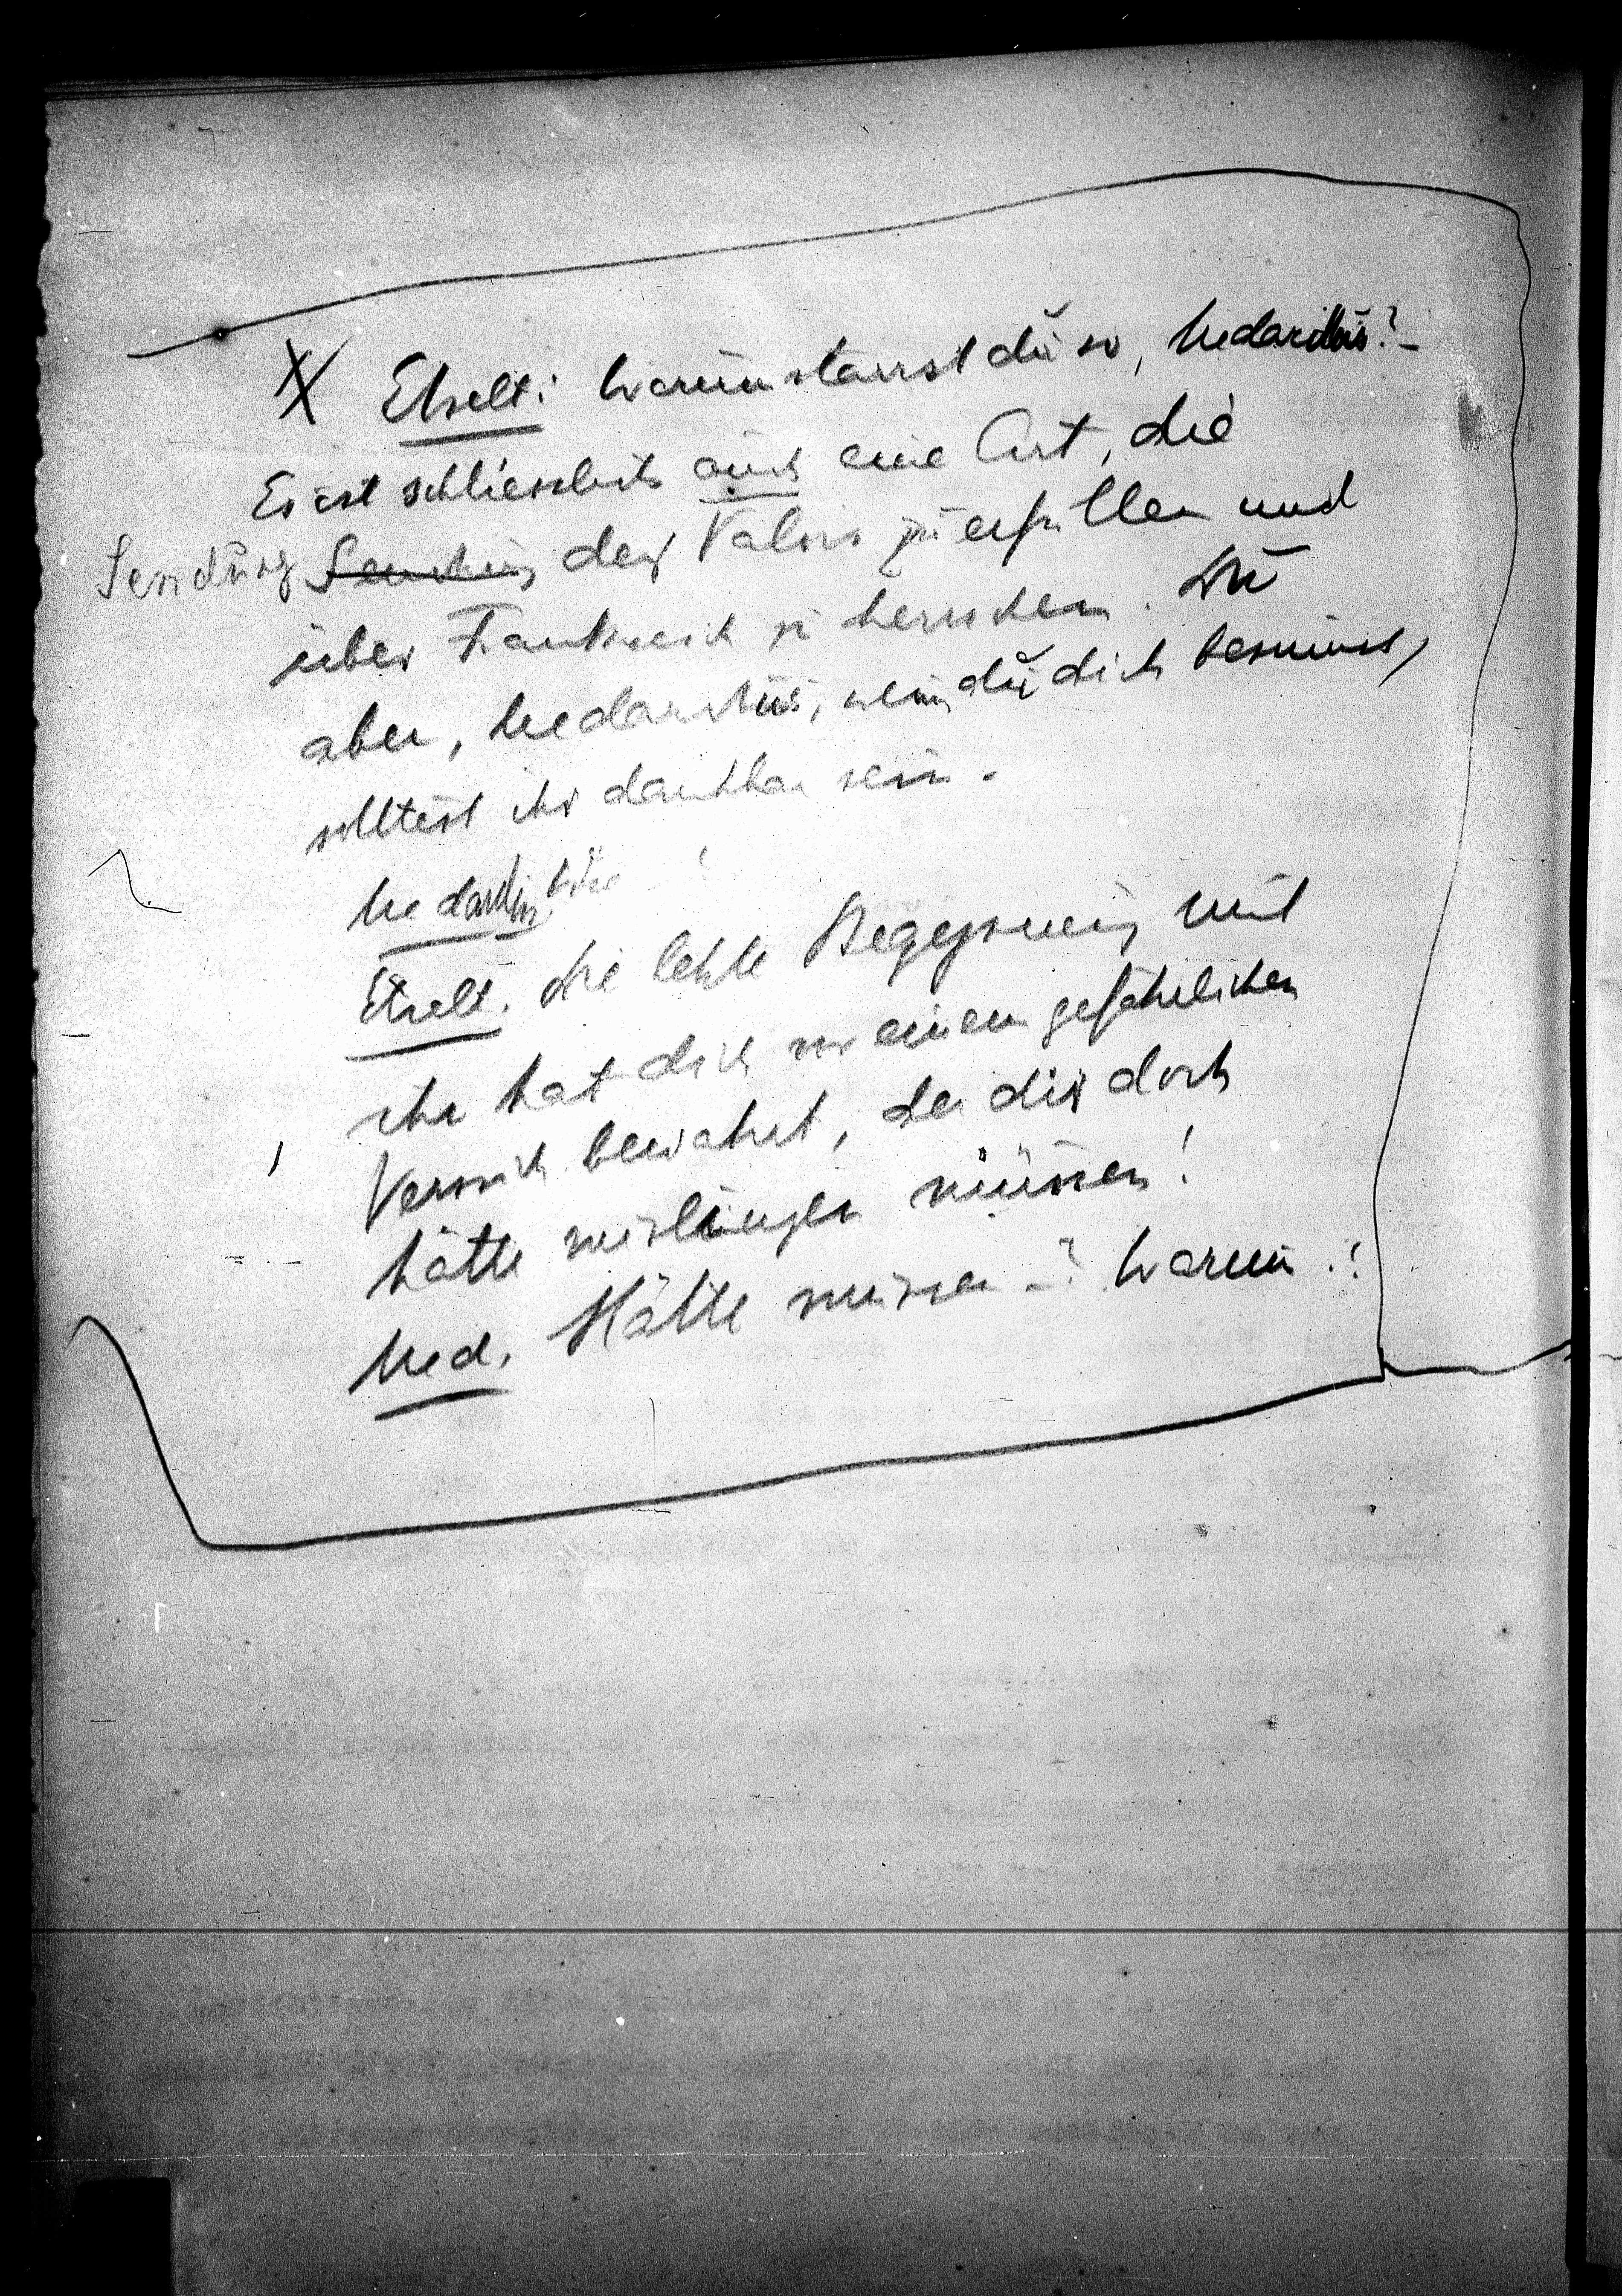 X Etzelt: Warum starrst du so, Medardus? –
Es ist schliesslich auch eine Art, die
Sendung Sendung der Valois zu erfüllen und
über Frankreich zu herrschen. Du
aber, Medardus, wenn du dich besinnst,
solltest ihr dankbar sein.
Medardus
Etzelt. Die letzte Begegnung mit
ihr hat dich vor einem gefährlichen
Versuch bewahrt, der dir doch
hätte misslingen müssen!
Med. Hätte müssen –? Warum?